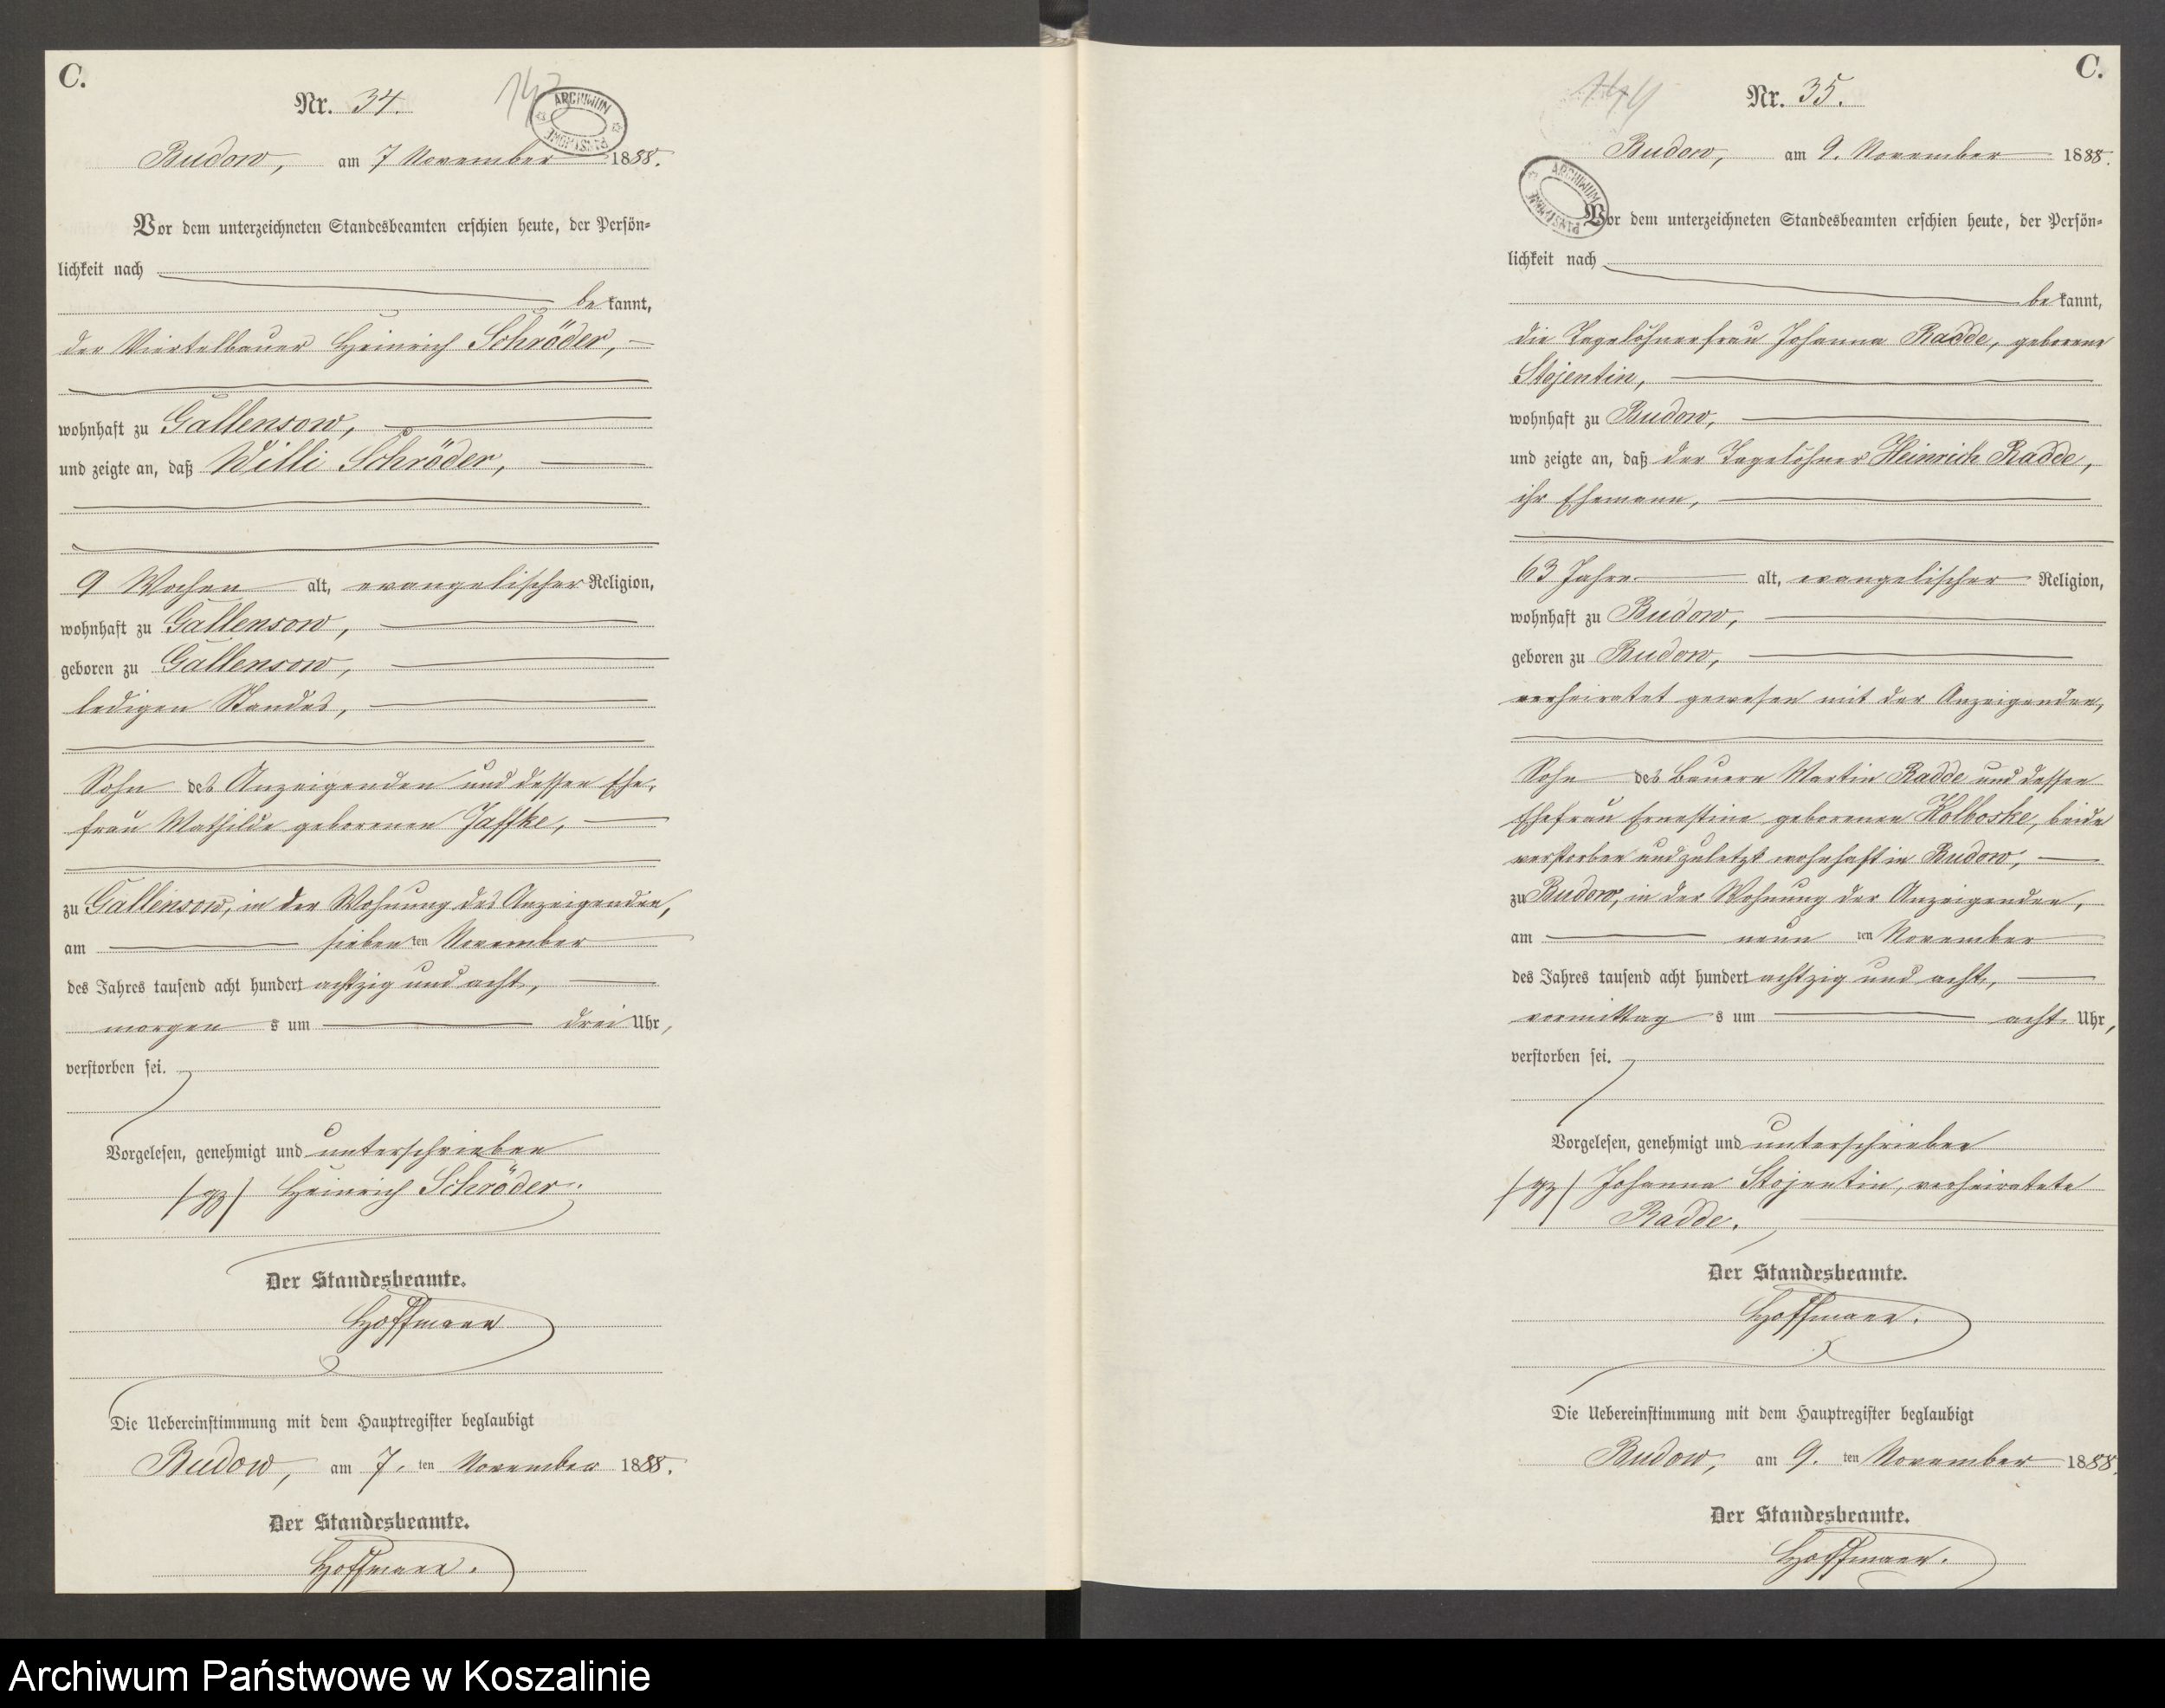 C.
Nr. 34.
143
ARCHIWUM PAŃSTWOWE
Budow, am 7 November 1888.
Vor dem unterzeichneten Standesbeamten erschien heute, der Persön-
lichkeit nach
be kannt,
der Viertelbauer Heinrich Schröder,
wohnhaft zu Gallensow,
und zeigte an, daß Willi Schröder,
9 Wochen alt, evangelischer Religion,
wohnhaft zu Gallensow,
geboren zu Gallensow,
ledigen Standes,
Sohn des Anzeigenden und dessen Ehe-
frau Mathilde geborenen Jaffke,
zu Gallensow, in der Wohnung des Anzeigenden,
am sieben ten November
des Jahres tausend acht hundert achtzig und acht,
morgen s um drei Uhr,
verstorben sei.
Vorgelesen, genehmigt und unterschrieben
(gz) Heinrich Schröder.
Der Standesbeamte.
Hoffmann
Die Uebereinstimmung mit dem Hauptregister beglaubigt
Budow, am 7. ten November 1888.
Der Standesbeamte.
Hoffmann.
C.
Nr. 35.
144
ARCHIWUM PAŃSTWOWE
Budow, am 9. November 1888.
Vor dem unterzeichneten Standesbeamten erschien heute, der Persön-
lichkeit nach
be kannt,
die Tagelöhnerfrau Johanna Radde, geborene
Stojentin,
wohnhaft zu Budow,
und zeigte an, daß der Tagelöhner Heinrich Radde,
ihr Ehemann,
63 Jahre alt, evangelischer Religion,
wohnhaft zu Budow,
geboren zu Budow,
verheiratet gewesen mit der Anzeigenden,
Sohn des Bauern Martin Radde und dessen
Ehefrau Ernestine geborenen Kolboske, beide
verstorben und zuletzt wohnhaft in Budow,
zu Budow, in der Wohnung der Anzeigenden,
am neun ten November
des Jahres tausend acht hundert achtzig und acht,
vormittag s um acht Uhr,
verstorben sei.
Vorgelesen, genehmigt und unterschrieben
(gz) Johanna Stojentin, verheiratete
Radde.
Der Standesbeamte.
Hoffmann.
Die Uebereinstimmung mit dem Hauptregister beglaubigt
Budow, am 9. ten November 1888.
Der Standesbeamte.
Hoffmann.
Archiwum Państwowe w Koszalinie